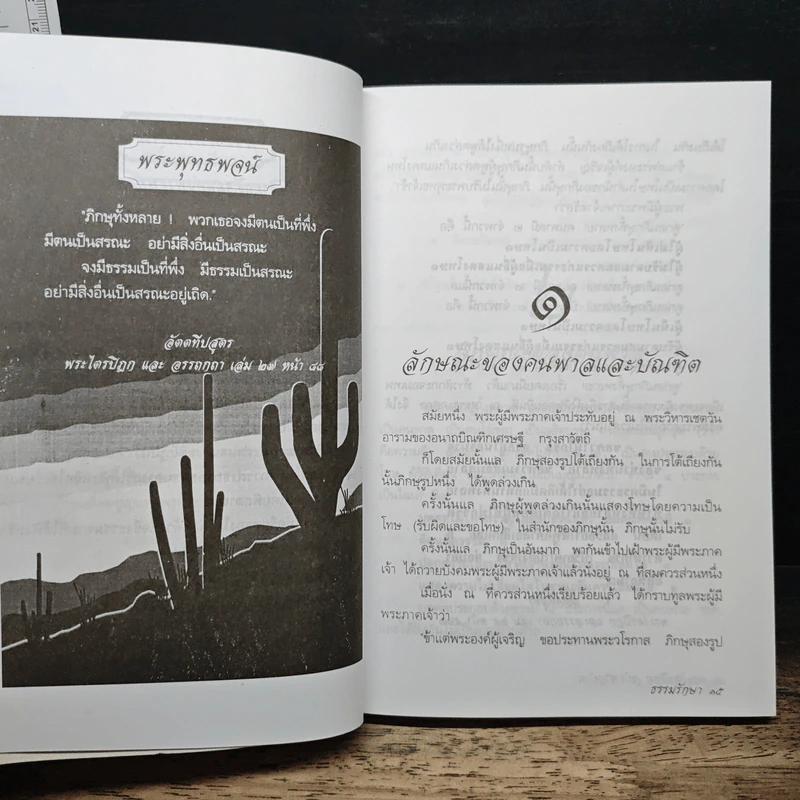 พระพุทธพจน์
"ภิกษุทั้งหลาย ! พวกเธอจงมีตนเป็นที่พึ่ง
มีตนเป็นสรณะ อย่ามีสิ่งอื่นเป็นสรณะ
จงมีธรรมเป็นที่พึ่ง มีธรรมเป็นสรณะ
อย่ามีสิ่งอื่นเป็นสรณะอยู่เถิด."
อัตตทีปสูตร
พระไตรปิฎก และ อรรถกถา เล่ม ๒๗ หน้า ๘๘
๑
ลักษณะของคนพาลและบัณฑิต
สมัยหนึ่ง พระผู้มีพระภาคเจ้าประทับอยู่ ณ พระวิหารเชตวัน
อารามของอนาถบิณฑิกเศรษฐี กรุงสาวัตถี
ก็โดยสมัยนั้นแล ภิกษุสองรูปโต้เถียงกัน ในการโต้เถียงกัน
นั้นภิกษุรูปหนึ่ง ได้พูดล่วงเกิน
ครั้งนั้นแล ภิกษุผู้พูดล่วงเกินนั้นแสดงโทษโดยความเป็น
โทษ (รับผิดและขอโทษ) ในสำนักของภิกษุนั้น ภิกษุนั้นไม่รับ
ครั้งนั้นแล ภิกษุเป็นอันมาก พากันเข้าไปเฝ้าพระผู้มีพระภาค
เจ้า ได้ถวายบังคมพระผู้มีพระภาคเจ้าแล้วนั่งอยู่ ณ ที่สมควรส่วนหนึ่ง
เมื่อนั่ง ณ ที่ควรส่วนหนึ่งเรียบร้อยแล้ว ได้กราบทูลพระผู้มี
พระภาคเจ้าว่า
"ข้าแต่พระองค์ผู้เจริญ ขอประทานพระวโรกาส ภิกษุสองรูป
ธรรมรักษา ๑๕